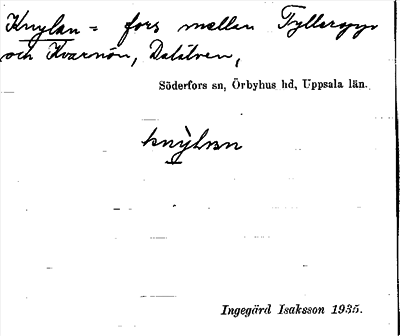 Knylan = fors mellan Tyllergyr
och Kvarnön, Dalälven,
Söderfors sn, Örbyhus hd, Uppsala län.
knỳlan
Ingegärd Isaksson 1935.